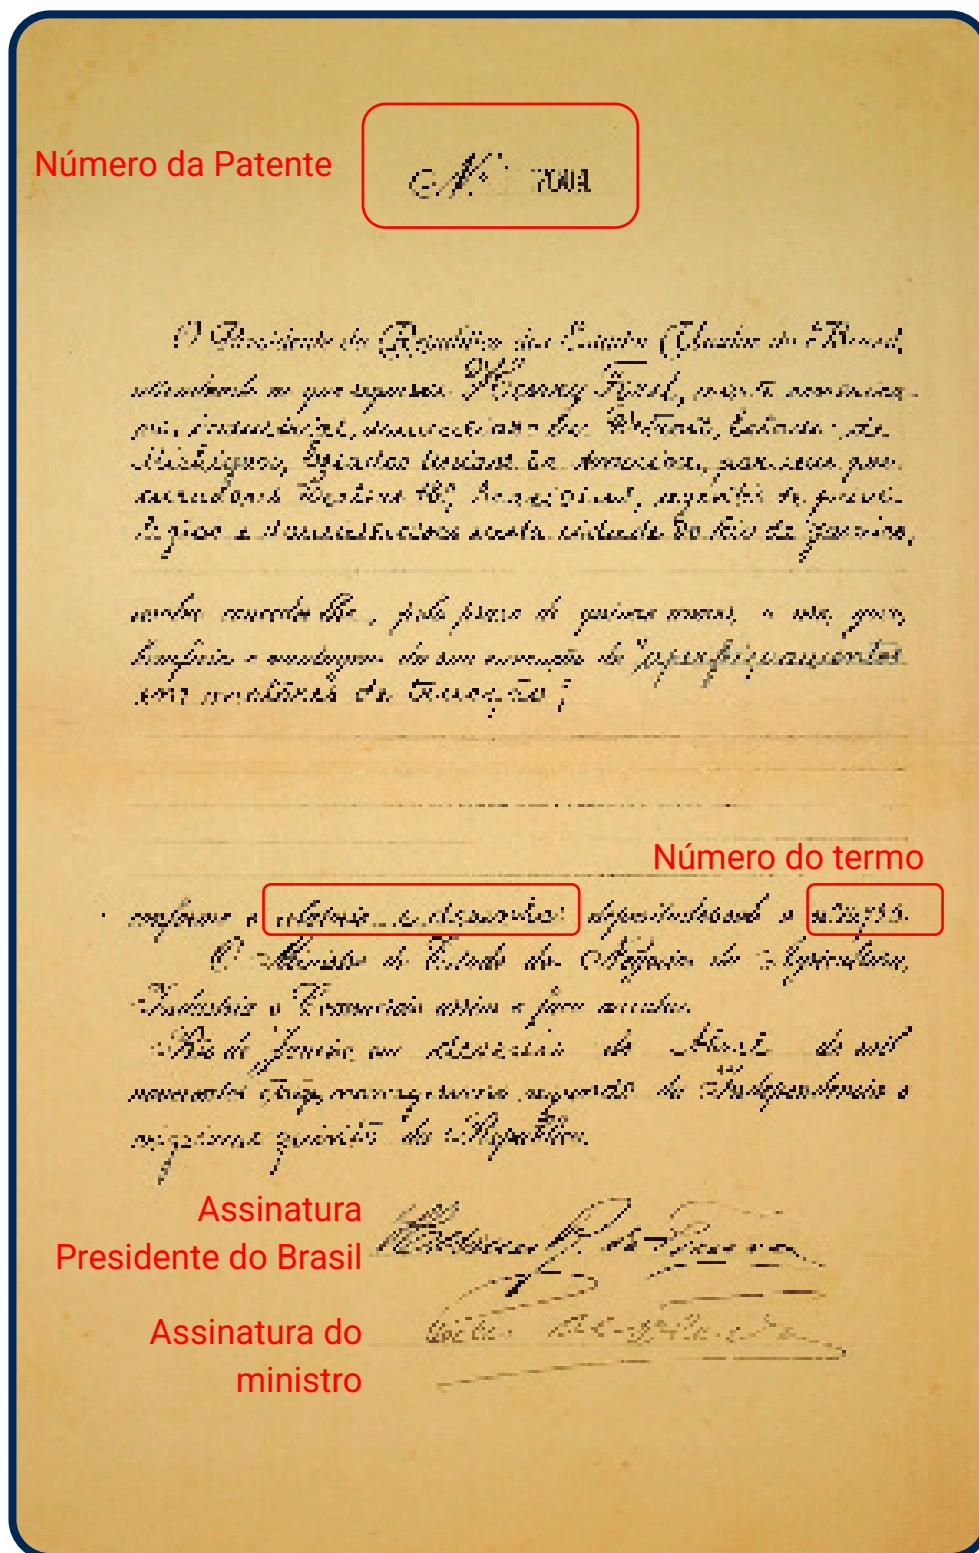 Número da Patente
Nº 7001
O Presidente da Republica dos Estados Unidos do Brasil,
attendendo ao que requereu Henry Ford, norte america-
no, industrial, domiciliado em Detroit, Estado de
Michigan, Estados Unidos da America, por seus pro-
curadores & privi-
legios e nesta cidade do Rio de Janeiro,
resolve conceder-lhe, pelo prazo de quinze annos, o uso, gozo,
beneficio e vantagens da sua invenção de "aperfeiçoamentos
em motores de tracção",
Número do termo
conforme o relatorio e desenhos depositados sob o
O Ministro de Estado dos Negocios da Agricultura,
Industria e Commercio assim o faça executar.
Rio de Janeiro, em de de mil
novecentos e nonagesimo segundo da Independencia e
vigesimo quinto da Republica.
Assinatura
Presidente do Brasil
Assinatura do
ministro